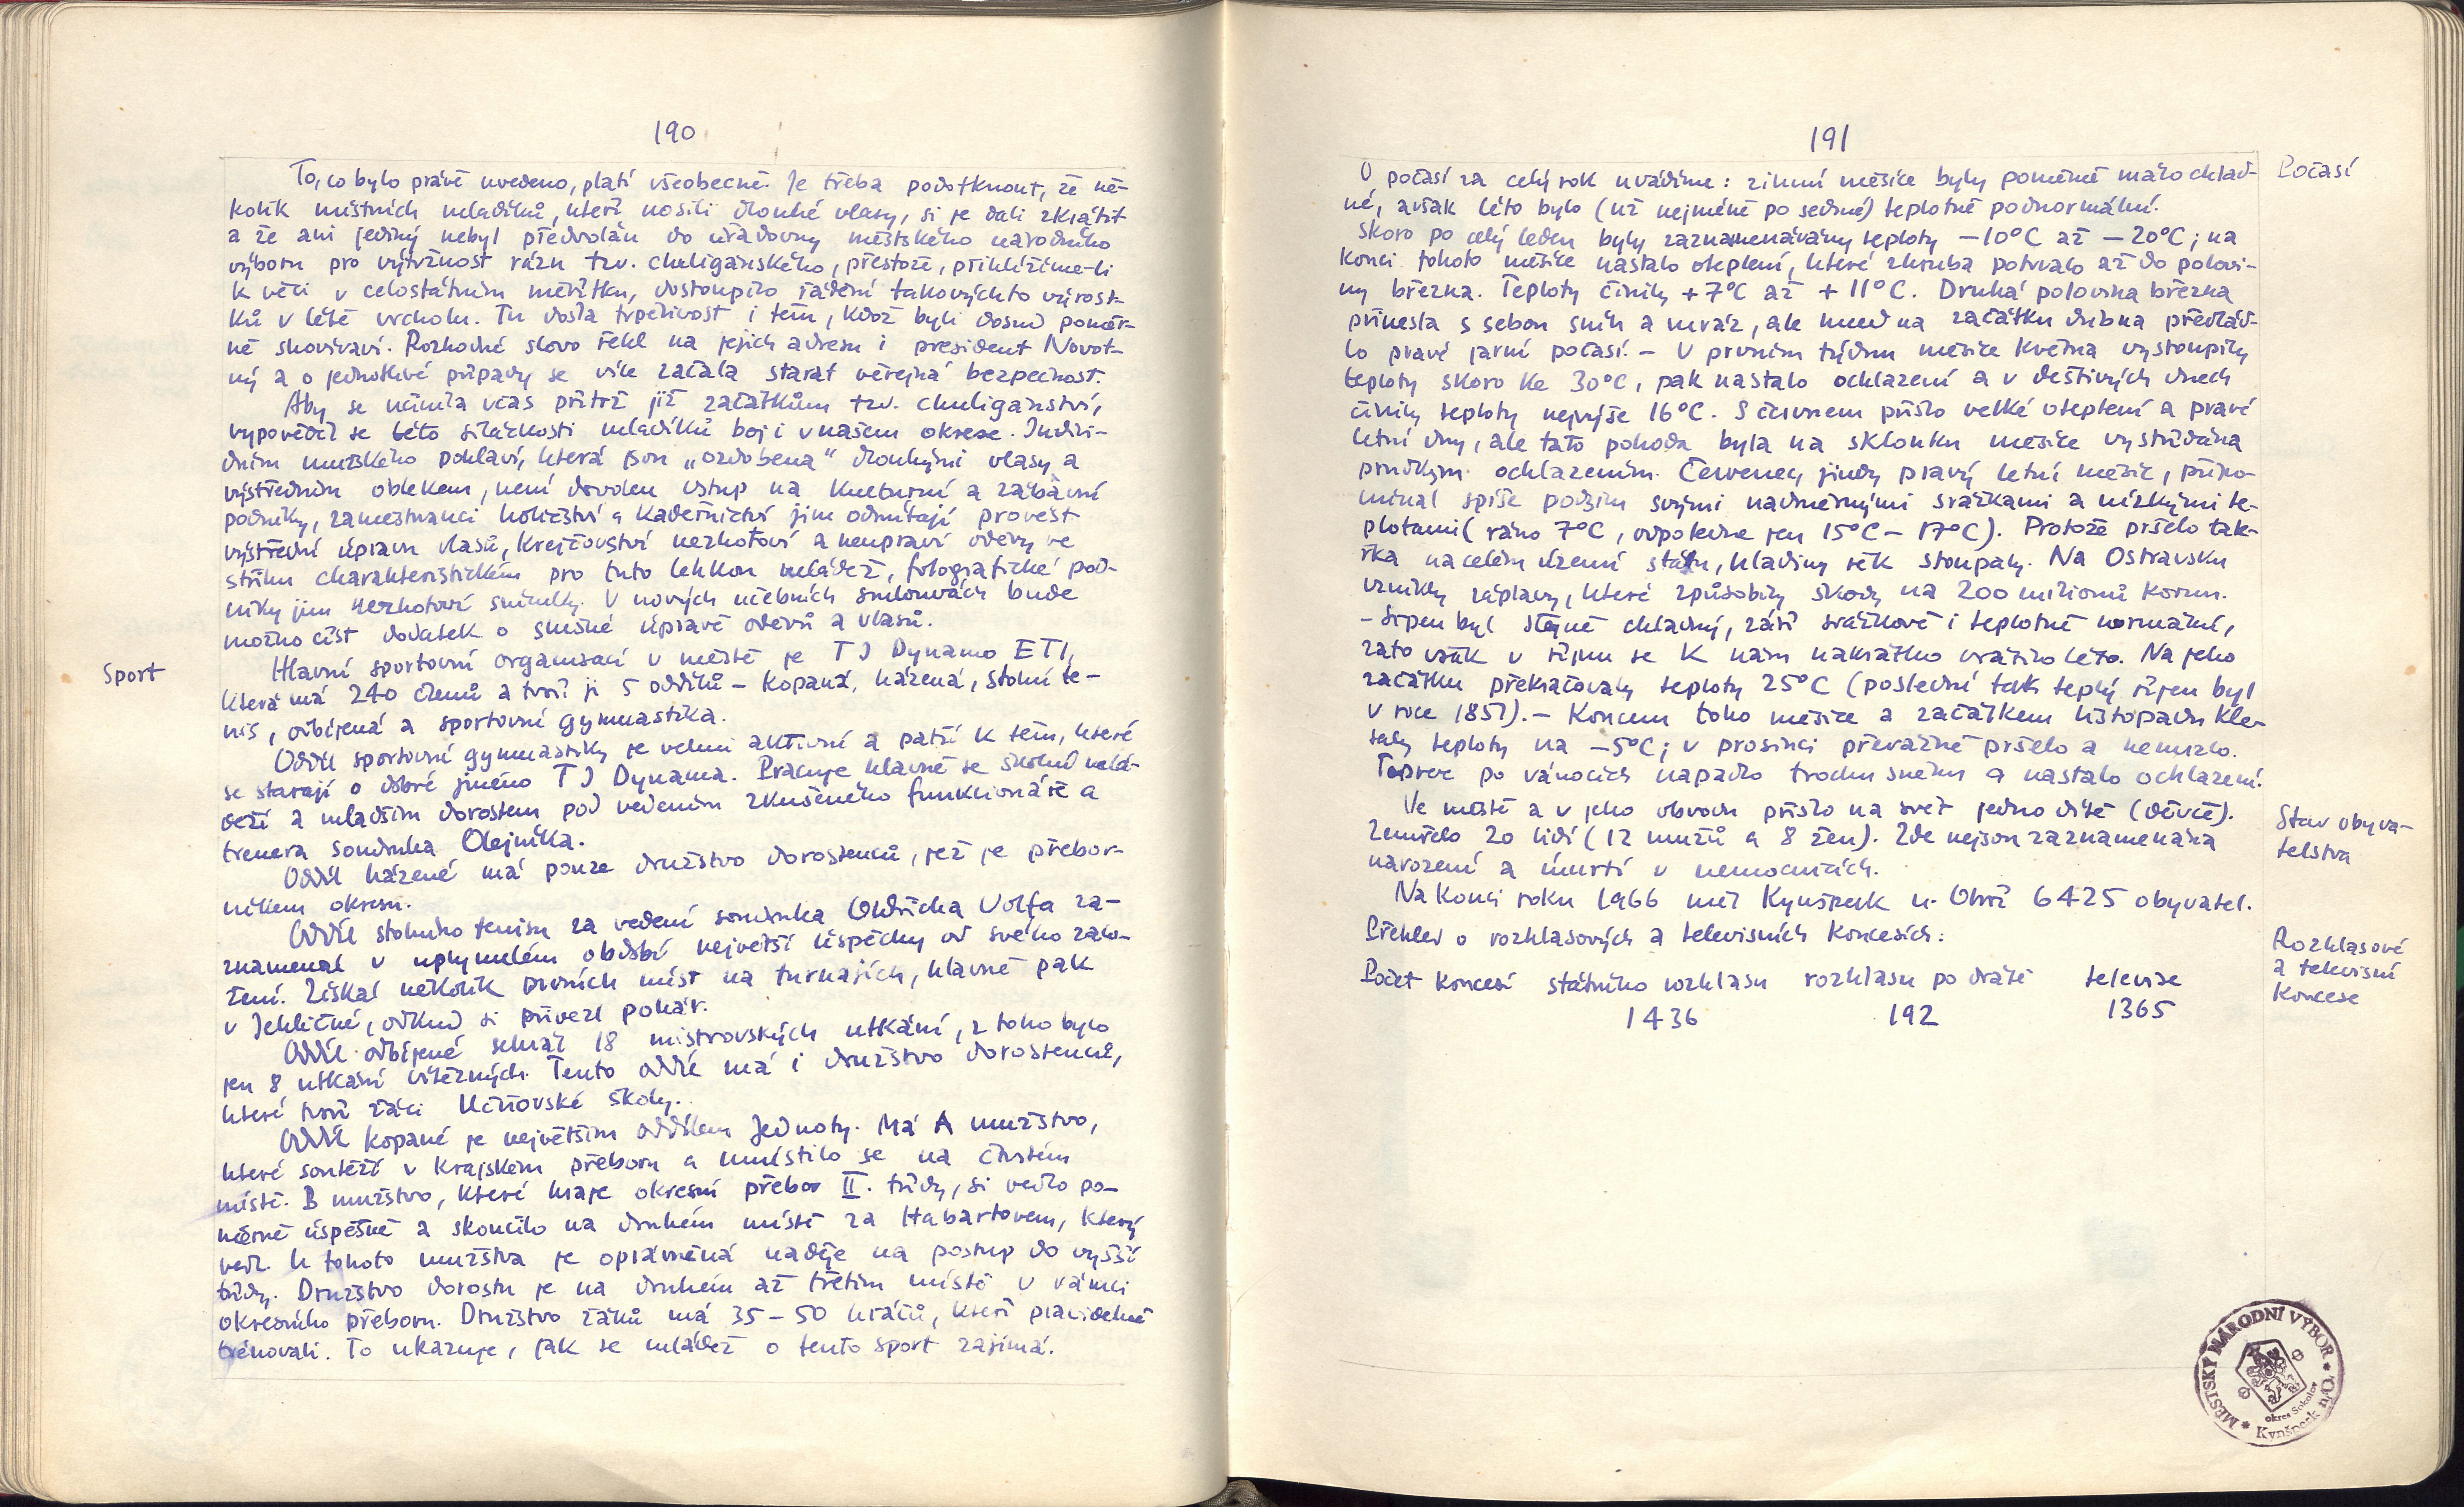 190
To, co bylo právě uvedeno, platí všeobecně. Je třeba podotknout, že ně-
kolik místních mladíků, kteří nosili dlouhé vlasy, si je dali zkrátit
a že ani jediný nebyl předvolán do úřadovny městského národního
výboru pro výtržnost rázu tzv. chuligánského, přestože, přihlížíme-li
k věci v celostátním měřítku, dostoupilo řádění takovýchto výrost-
ků v létě vrcholu. Tu došla trpělivost i těm, kdož byli dosud poměr-
ně shovívaví. Rozhodné slovo řekl na jejich adresu i president Novot-
ný a o jednotlivé případy se více začala starat veřejná bezpečnost.
Aby se učinila včas přítrž již začátkům tzv. chuligánství,
vypověděl se této sítácnosti mladíků boj i v našem okrese. Indivi-
duím mužského pohlaví, která jsou „ozdobena" dlouhými vlasy a
výstředním oblekem, není dovolen vstup na kulturní a zábavní
podniky, zaměstnanci holičství a kadeřnictví jim odmítají provést
výstřední úpravu vlasů, krejčovství nezhotoví a neupraví oděvy ve
střihu charakteristickém pro tuto lehkou mládež, fotografické pod-
niky jim nezhotoví snímky. V nových učebních smlouvách bude
možno číst dodatek o slušné úpravě oděvů a vlasů.
Sport
Hlavní sportovní organisací v městě je TJ Dynamo ETI,
která má 240 členů a tvoří ji 5 oddílů – kopaná, házená, stolní te-
nis, odbíjená a sportovní gymnastika.
Oddíl sportovní gymnastiky je velmi aktivní a patří k těm, které
se starají o dobré jméno TJ Dynama. Pracuje hlavně se školní mlá-
deží a mladším dorostem pod vedením zkušeného funkcionáře a
trenera soudruha Olejníka.
Oddíl házené má pouze družstvo dorostenců, jež je přebor-
níkem okresu.
Oddíl stolního tenisu za vedení soudruha Oldřicha Volfa za-
znamenal v uplynulém období největší úspěchy od svého zalo-
žení. Získal několik prvních míst na turnajích, hlavně pak
v Jehličné, odkud si přivezl pohár.
Oddíl odbíjené sehrál 18 mistrovských utkání, z toho bylo
jen 8 utkání vítězných. Tento oddíl má i družstvo dorostenců,
které tvoří žáci učňovské školy.
Oddíl kopané je největším oddílem Jednoty. Má A mužstvo,
které soutěží v krajském přeboru a umístilo se na čtvrtém
místě. B mužstvo, které hraje okresní přebor II. třídy, si vedlo po-
měrně úspěšně a skončilo na druhém místě za Habartovem, který
vedl. U tohoto mužstva je oprávněná naděje na postup do vyšší
třídy. Družstvo dorostu je na druhém až třetím místě v rámci
okresního přeboru. Družstvo žáků má 35 – 50 hráčů, kteří pravidelně
trénovali. To ukazuje, jak se mládež o tento sport zajímá.
191
Počasí
O počasí za celý rok uvádíme: zimní měsíce byly poměrně málo chlad-
né, avšak léto bylo (už nejméně po sedmé) teplotně podnormální.
Skoro po celý leden byly zaznamenávány teploty –10°C až –20°C; na
konci tohoto měsíce nastalo oteplení, které zhruba potrvalo až do polovi-
ny března. Teploty činily +7°C až +11°C. Druhá polovina března
přinesla s sebou sníh a mráz, ale hned na začátku dubna převlád-
lo pravé jarní počasí. – V prvním týdnu měsíce května vystoupily
teploty skoro ke 30°C, pak nastalo ochlazení a v deštivých dnech
činily teploty nejvýše 16°C. S červnem přišlo velké oteplení a pravé
letní dny, ale tato pohoda byla na sklonku měsíce vystřídána
prudkým ochlazením. Červenec, jindy pravý letní měsíc, připo-
mínal spíše podzim svými nadměrnými srážkami a nízkými te-
plotami (ráno 7°C, odpoledne jen 15°C – 17°C). Protože pršelo tak-
řka na celém území státu, hladiny řek stoupaly. Na Ostravsku
vznikly záplavy, které způsobily škody na 200 milionů korun.
– Srpen byl stejně chladný, září srážkově i teplotně normální,
zato však v říjnu se k nám nakrátko vrátilo léto. Na jeho
začátku překračovaly teploty 25°C (poslední tak teplý říjen byl
v roce 1851). – Koncem toho měsíce a začátkem listopadu kle-
saly teploty na –5°C; v prosinci převážně pršelo a nemrzlo.
Teprve po vánocích napadlo trochu sněhu a nastalo ochlazení.
Stav obyva-
telstva
Ve městě a v jeho obvodu přišlo na svět jedno dítě (děvče).
Zemřelo 20 lidí (12 mužů a 8 žen). Zde nejsou zaznamenána
narození a úmrtí v nemocnicích.
Na konci roku 1966 měl Kynšperk n. Ohří 6425 obyvatel.
Rozhlasové
a televisní
koncese
Přehled o rozhlasových a televisních koncesích:
Počet koncesí státního rozhlasu rozhlasu po drátě televise
1436 192 1365
MĚSTSKÝ NÁRODNÍ VÝBOR
Kynšperk n/Ohří
okres Sokolov